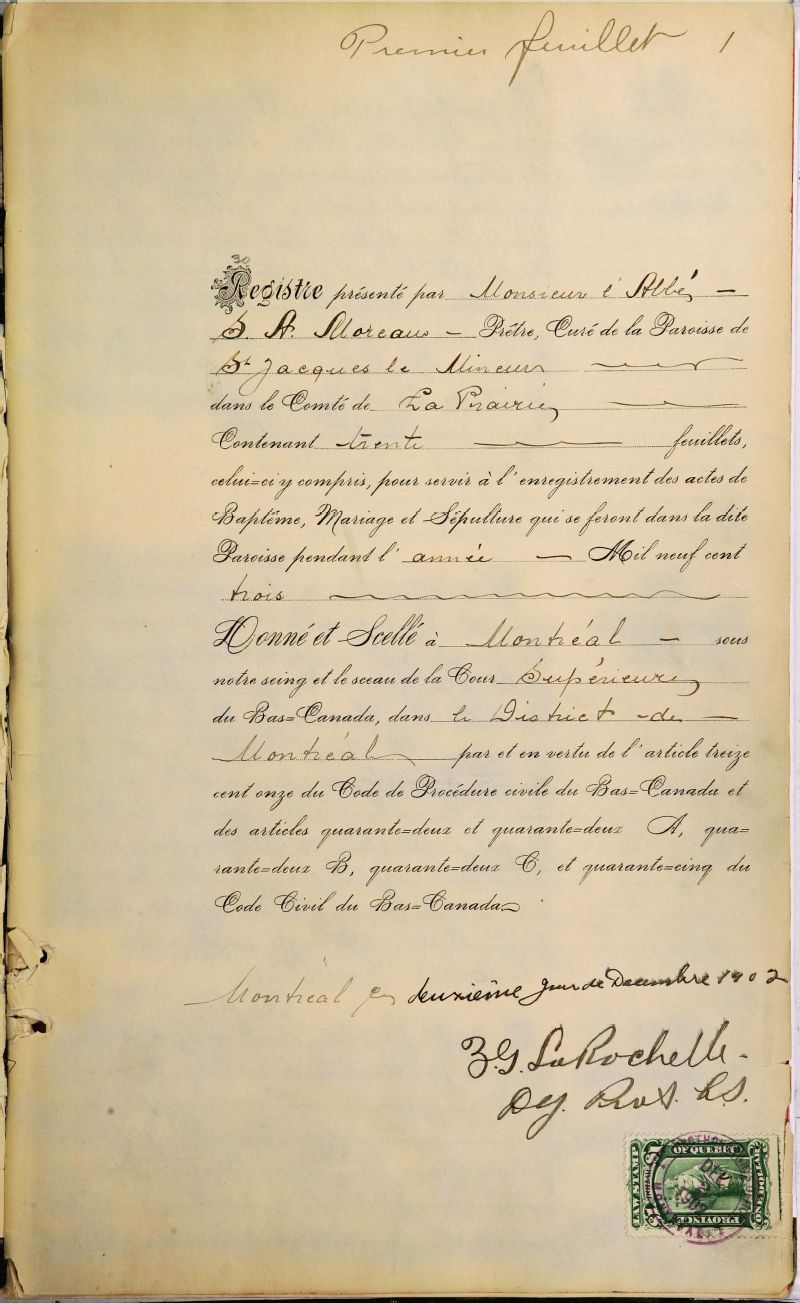 Premier feuillet 1
30
Registre présenté par Monsieur l'Abbé
S. A. Moreau Prêtre, Curé de la Paroisse de
St Jacques le Mineur
dans le Comté de La Prairie
Contenant trente feuillets,
celui=ci y compris, pour servir à l'enregistrement des actes de
Baptême, Mariage et Sépulture qui se feront dans la dite
Paroisse pendant l'année Mil neuf cent
trois
Donné et Scellé à Montréal sous
notre seing et le sceau de la Cour Supérieure
du Bas=Canada, dans le District de
Montréal par et en vertu de l'article treize
cent onze du Code de Procédure civile du Bas=Canada et
des articles quarante=deux et quarante=deux A, qua=
rante=deux B, quarante=deux C, et quarante=cinq du
Code Civil du Bas=Canada
Montréal ce deuxième jour de Decembre 1902
Z. G. LaRochelle
Dep. Prot. C.S.
OF QUEBEC
LAW STAMP
PROVINCE
1902